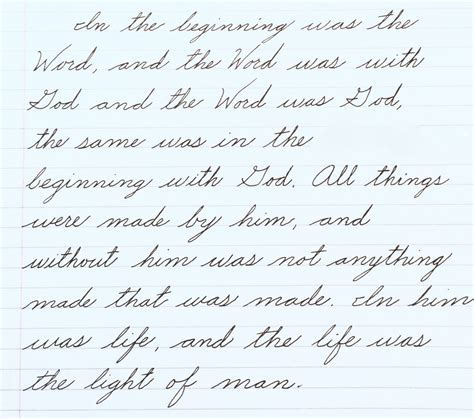 In the beginning was the
Word, and the Word was with
God and the Word was God,
the same was in the
beginning with God. All things
were made by him, and
without him was not anything
made that was made. In him
was life, and the life was
the light of man.